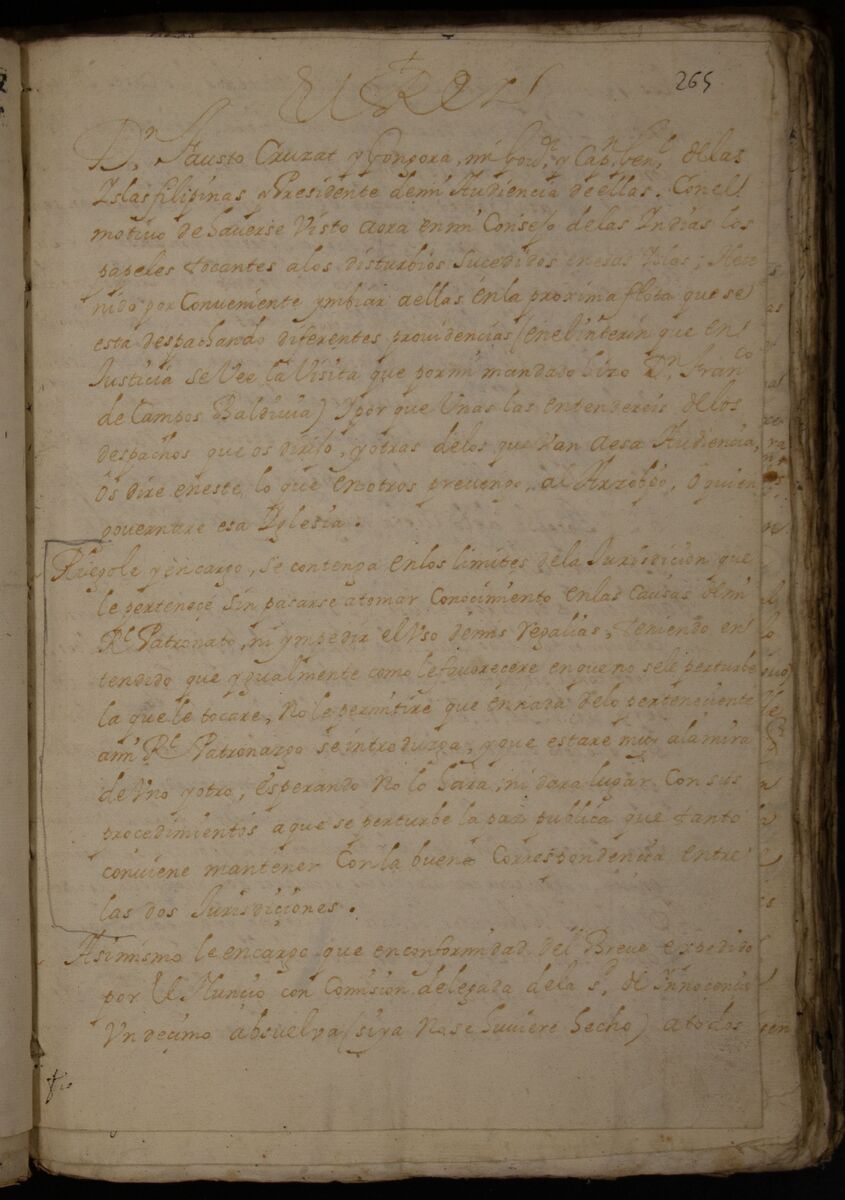 265
El Rey
Dn. Fausto Cruzat y Gongora, mi Govr. y Capn. Genl. de las
Yslas filipinas y Presidente de mi Audiencia de ellas. Con el
motivo de haverse Visto aora en mi Consejo de las Indias los
papeles tocantes a los disturbios sucedidos en esas Yslas; He te
nido por Conveniente ymbiar a ellas en la proxima flota que se
esta despachando diferentes providencias (en el interin que en
Justicia se Vee la Visita que por mi mandado hizo Dn. Franco
de Campos Baldivia) Y por que Unas las entendereis de los
despachos que os dirijo, y otras de los que van a esa Audiencia,
os dire en este, lo que en otros prevengo, al Arzobpo, o quien
governare esa Yglesia.
Ruegole y encargo, se contenga en los limites de la Jurisdicion que
le perteneçe sin pasarse a tomar Conocimiento en las Causas de mi
Rl Patronato, ni ympedir el Uso de mis regalias, teniendo en
tendido que ygualmente como le favorecere en que no se le perturbe
la que le tocare, No le permitire que en nada de lo perteneciente
a mi Rl Patronazgo se introduzga, y que estare muy a la mira
de Uno y otro, esperando No lo hara, ni dara lugar Con sus
procedimientos a que se perturbe la paz publica que tanto
conviene mantener Con la buena Correspondencia entre
las dos Jurisdiçiones.
Asimismo le encargo que en conformidad del Breve expedido
por el Nuncio con Comision delegada de la sd. de Innocencio
Undeçimo absuelva (si ya No se huviere hecho) a todos